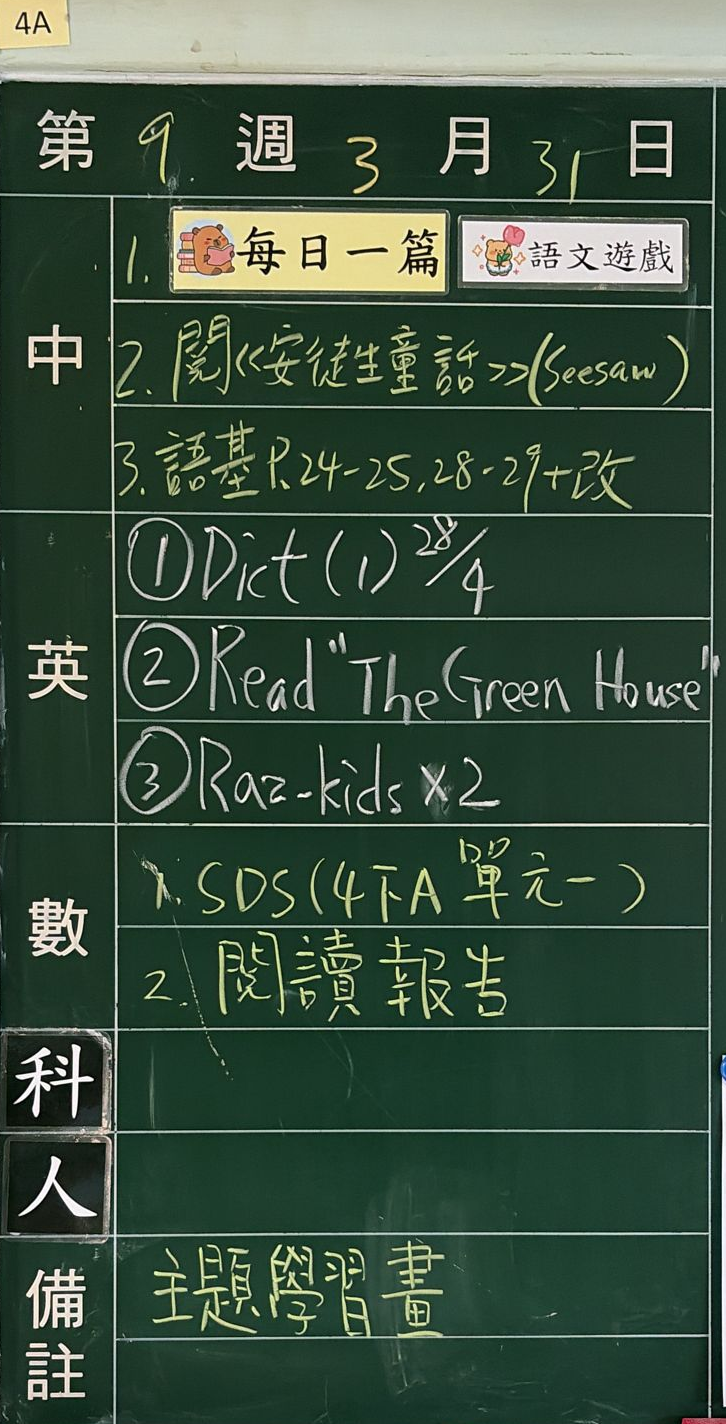 4A
第 9 週 3 月 31 日
中
1. 每日一篇 語文遊戲
2. 閱<<安徒生童話>>(Seesaw)
3. 語基 P.24-25,28-29+改
英
① Dict (1) 28/4
② Read "The Green House"
③ Raz-kids x2
數
1. SDS(4下A 單元一)
2. 閱讀報告
科
人
備註
主題學習畫